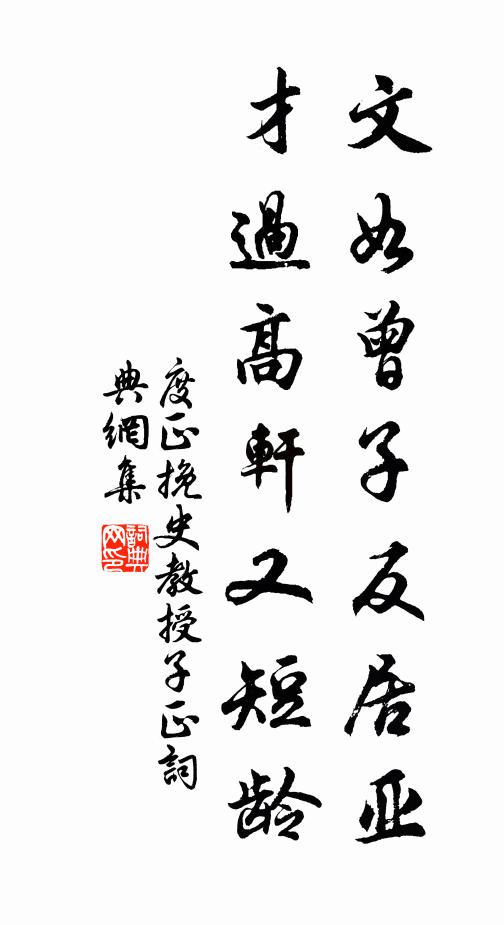 文如曾子反居亚
才過高軒又短龄
度正挽史教授子正詞
典網集
詞典網印